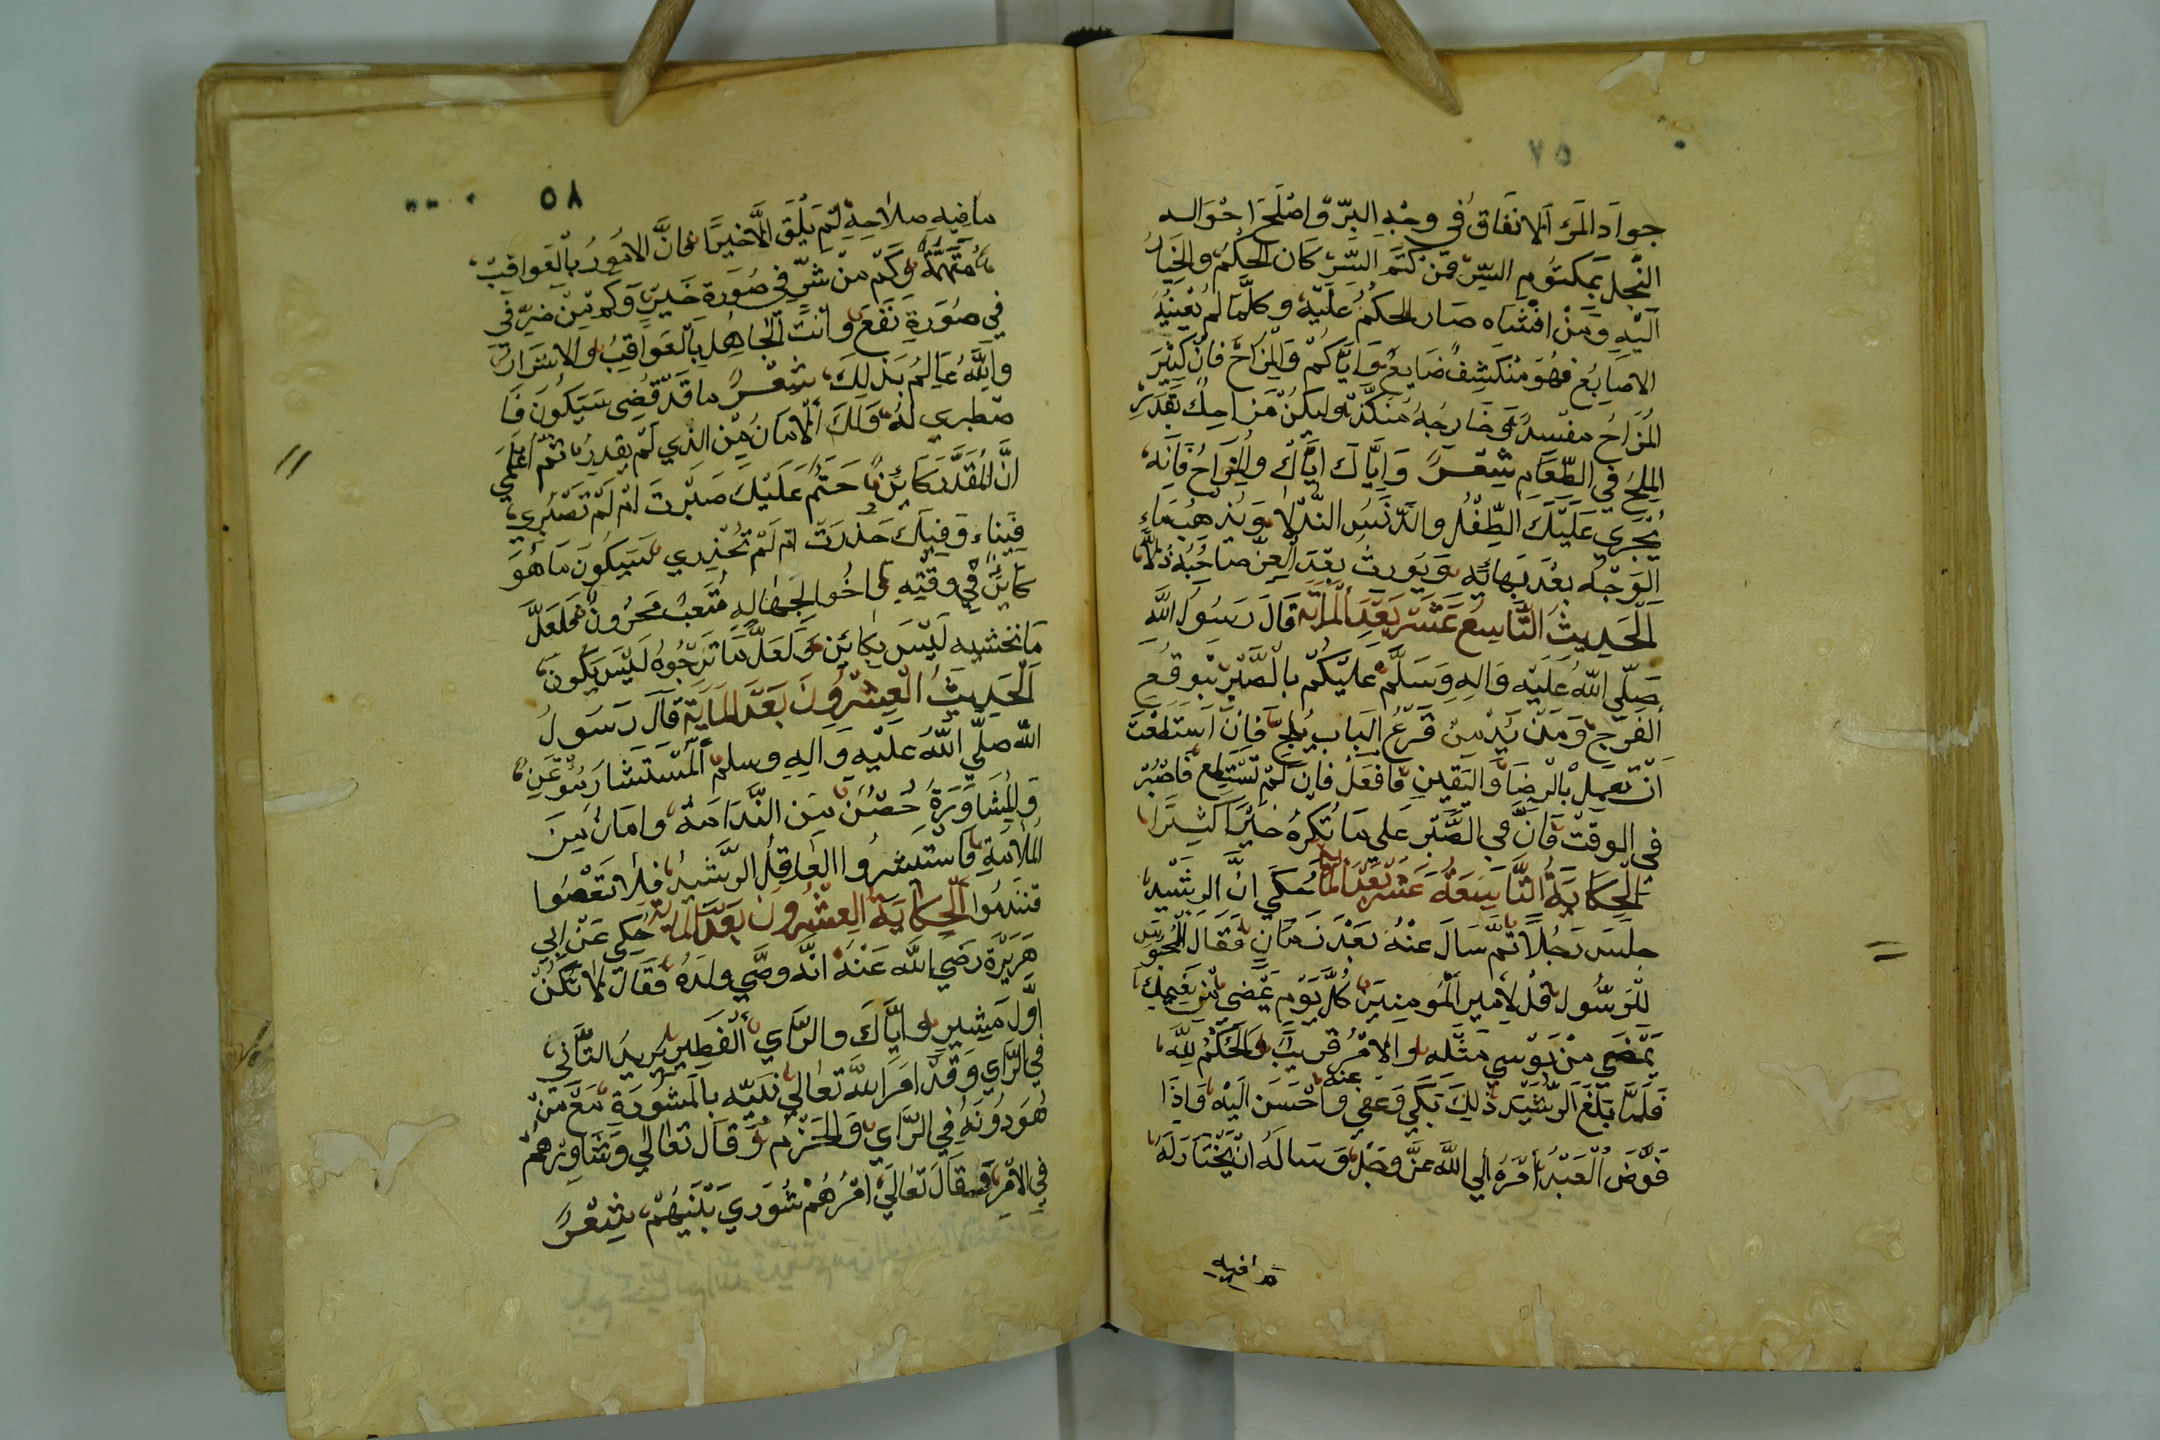 ٧٥
جواد المرء الانفاق في وجه البرّ واصلح احواله
النّجل بمكتوم السِّرّ فمن كتم السّر كان الحكم والخيار
اليه ومن افشاه صار الحكم عليه وكلّما لم يعينيه
الاصابع فهو منكشف ضايع وايّاكم والمزاح فان كثير
المزاح مفسدة وخارجه منكدة وليكن مزاحك بقدر
الملح في الطّعام شعر وايّاك ايّاك والمزاح فانه
يُجْري عليك الطّفل والدّنس النّذلا ويذهب ماء
الوجه بعد بهائه ويورث بعد العزّ صاحبه ذلّا
الحديث التّاسع عشر بعد المائة قال رسول الله
صلّى الله عليه واله وسلّم عليكم بالصّبر بتوقع
الفرج ومن يدمن قرع الباب يلج فان استطعت
ان تعمل بالرضا واليقين فافعل فان لم تستطع فاصبر
في الوقت فانّ في الصّبر على ما تكره خيرًا كثيرا
الحكاية التّاسعة عشر بعد المائة حكي انّ الرشيد
حبس رجلا ثم سال عنه بعد زمان فقال المحبوس
للرسول قل لأمير المومنين كل يوم يمضي من نعيمك
يمضي من بوسي مثله والامر قريب والحكم لله
فلمّا بلغ الرّشيد ذلك بكى وعفى عنه واحسن اليه واذا
فوّض العبد أمره الي الله عزّ وجلّ وساله ان يختار له
ما فيه
٥٨
ما فيه صلاحه لم يلق الّا خيرًا فانّ الامور بالعواقب
متهمّة وكم من شرّ في صورة خير وكم من ضرّ في
في صورة نفع وانت الجاهل بالعواقب والاسرار
والله عالم بذلك شعر ما قد قضى سيكون فا
صطبري له ولك الامان من الذي لم يقدر ثم اعلمي
انّ المقدّر كائن حتم عليك صبرت ام لم تصبري
فيناء وفيك حذرت ام لم تحذري سيكون ما هو
كاين في وقته واخو الجهاله متعب محزون فلعلّ
ما تخشيه ليس بكائن ولعلّ ما ترجوه ليس يكون
الحديث العشرون بعد المائة قال رسول
الله صلّى الله عليه واله وسلم المستشار مؤتمن
والمشاورة حصن من النّدامة وامان من
الملامة فاستشروا العاقل الرّشيد فلا تعصوا
فتندموا الحكاية العشرون بعد المائة حكي عن ابي
هريرة رضي الله عنه انّه وصّى ولده فقال لا تكن
اوّل مشير وايّاك والرّاي الفطير يريد التّأني
في الرّاي وقد امر الله تعالى نبيّه بالمشورة مع من
هو دونه في الرّاي والحزم وقال تعالى وشاورهم
في الامر وقال تعالى امرهم شورى بينهم شعر